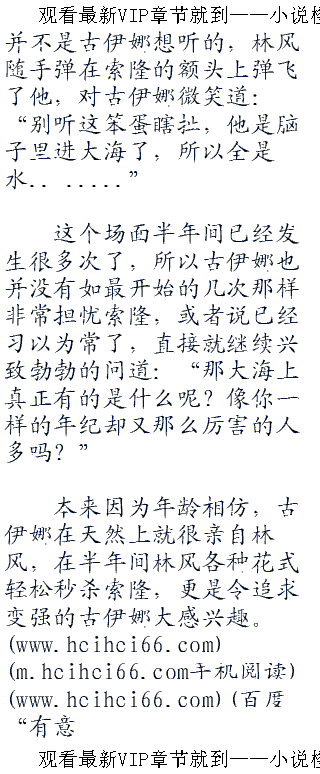 观看最新VIP章节就到——小说楼
并不是古伊娜想听的，林风
随手弹在索隆的额头上弹飞
了他，对古伊娜微笑道：
“别听这笨蛋瞎扯，他是脑
子里进大海了，所以全是
水.. .....”
这个场面半年间已经发
生很多次了，所以古伊娜也
并没有如最开始的几次那样
非常担忧索隆，或者说已经
习以为常了，直接就继续兴
致勃勃的问道：“那大海上
真正有的是什么呢？像你一
样的年纪却又那么厉害的人
多吗？”
本来因为年龄相仿，古
伊娜在天然上就很亲自林
风，在半年间林风各种花式
轻松秒杀索隆，更是令追求
变强的古伊娜大感兴趣。
(www.hcihci66.com)
(m.hcihci66.com手机阅读)
(www.hcihci66.com)(百度
“有意
观看最新VIP章节就到——小说楼